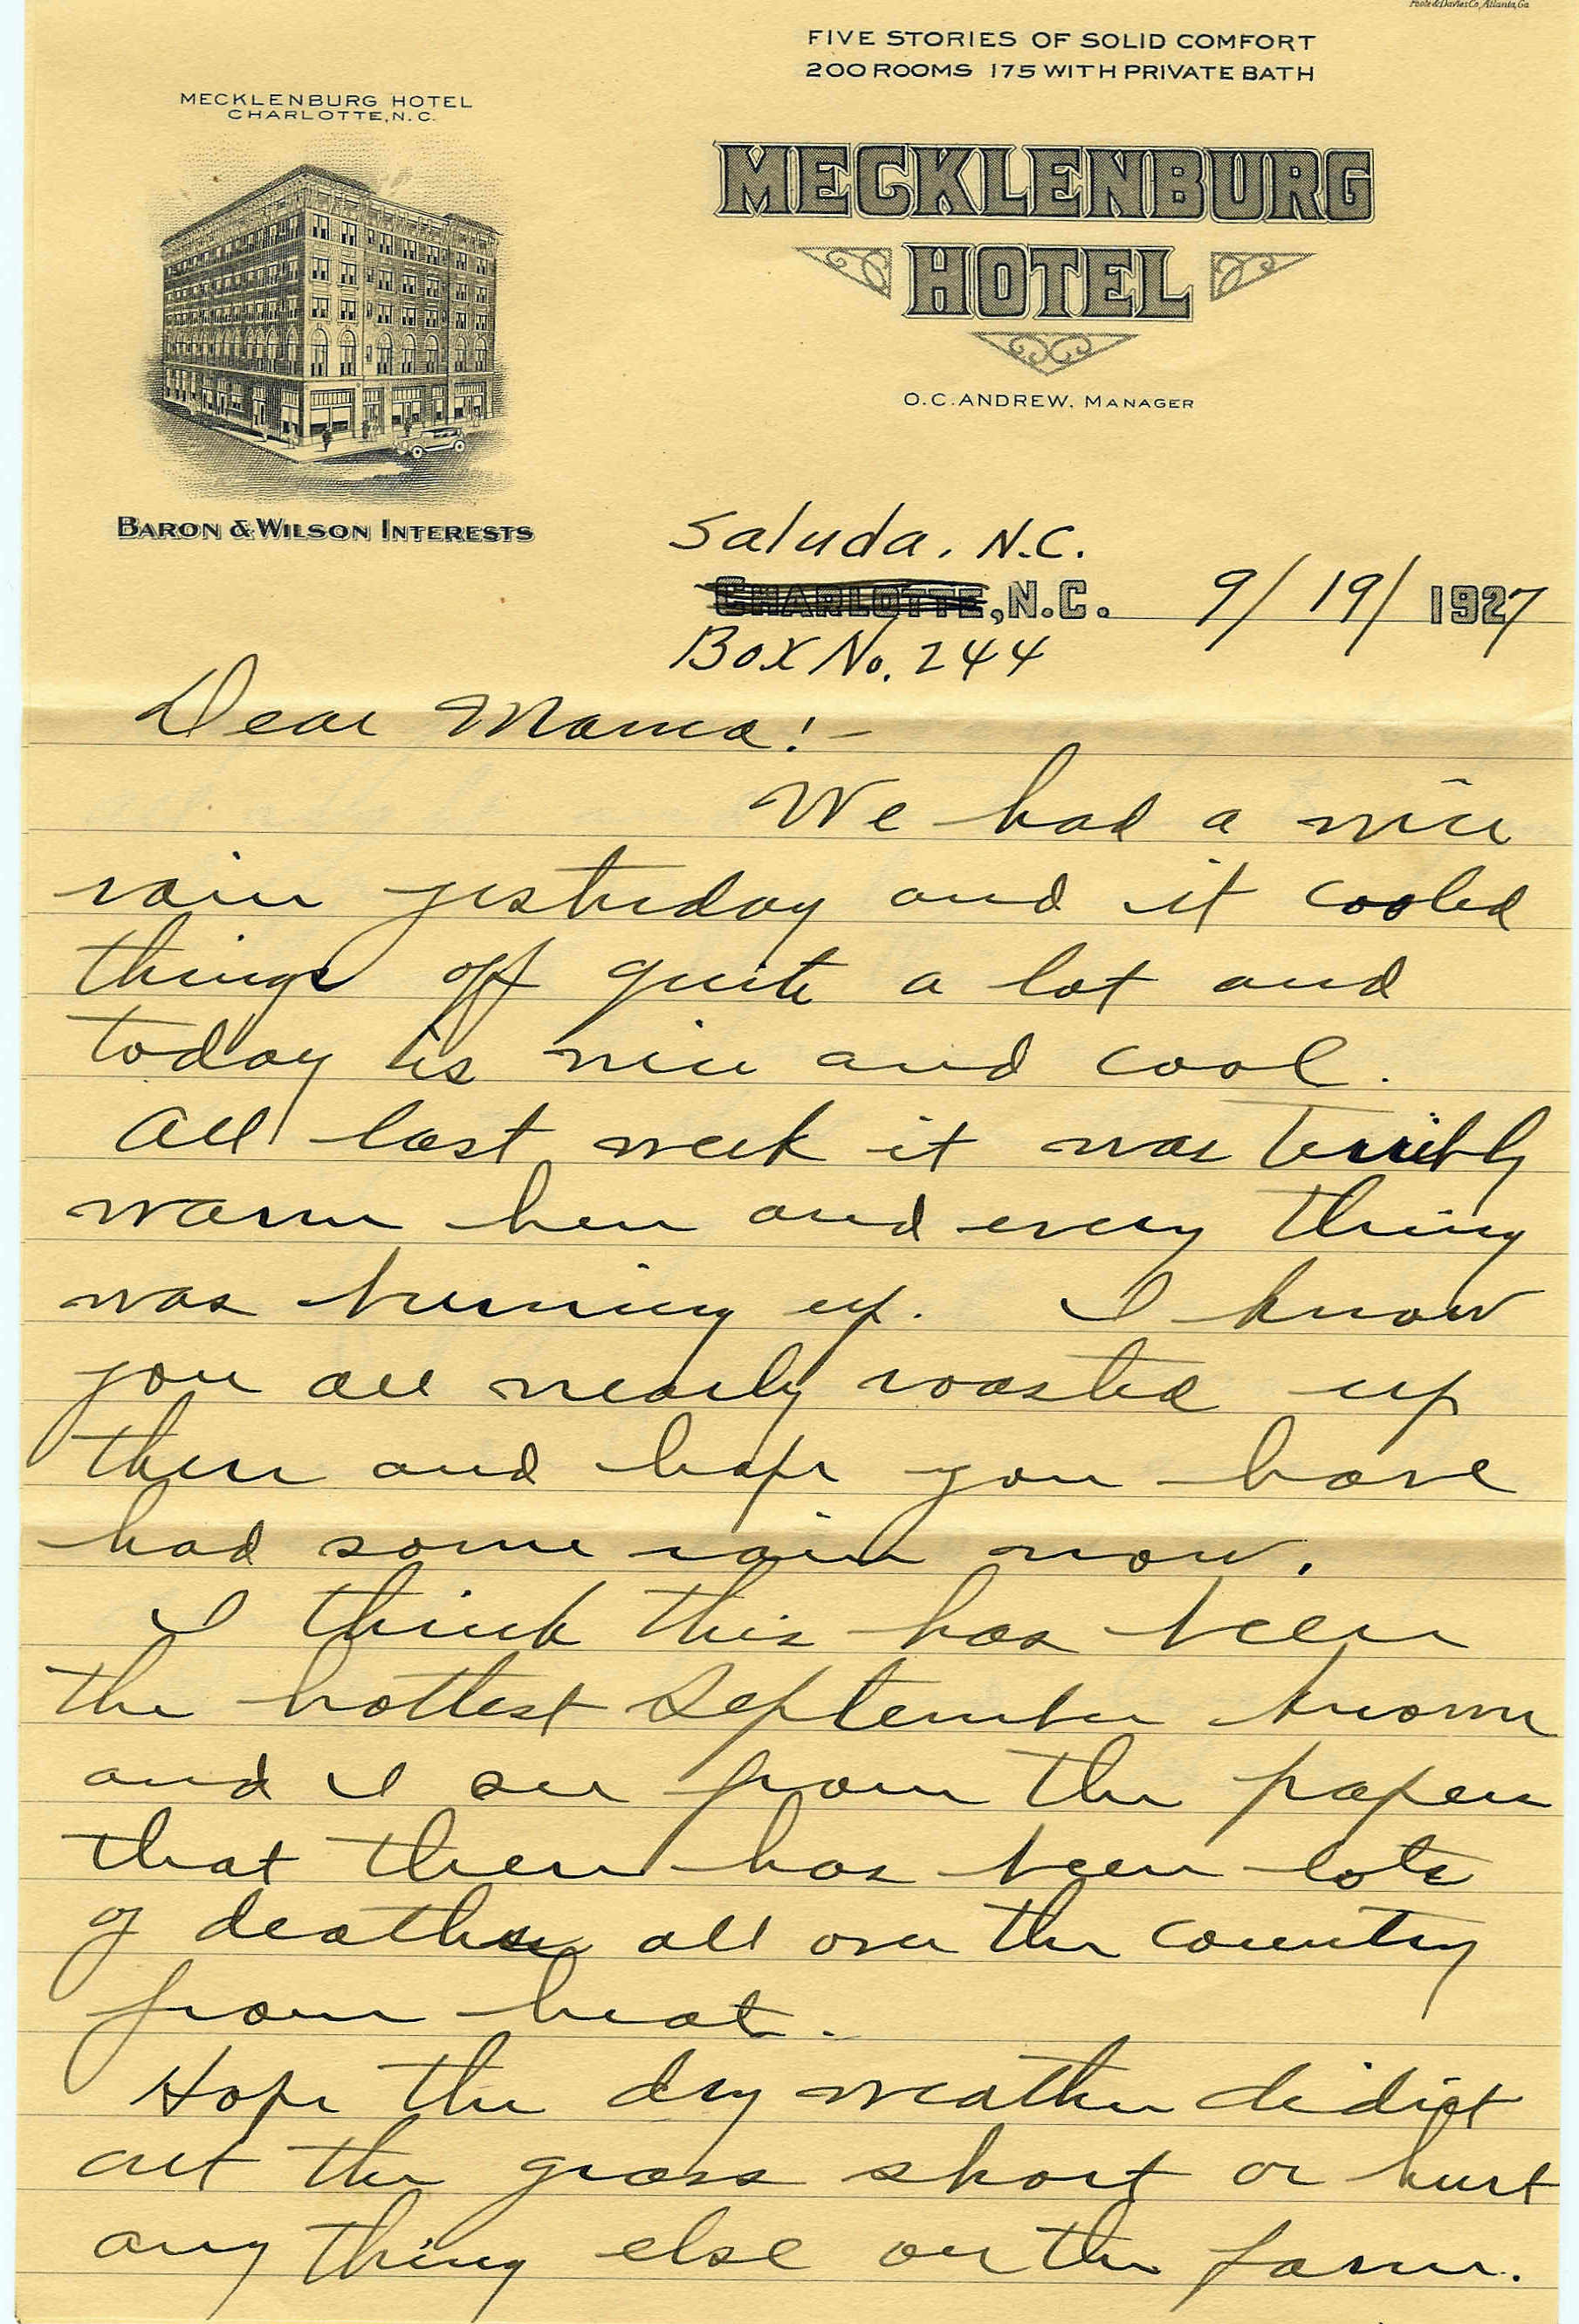 Foote & Davies Co., Atlanta, Ga
FIVE STORIES OF SOLID COMFORT
200 ROOMS 175 WITH PRIVATE BATH
MECKLENBURG HOTEL
CHARLOTTE, N.C.
MECKLENBURG
HOTEL
O.C. ANDREW, MANAGER
BARON & WILSON INTERESTS
Saluda, N.C.
CHARLOTTE, N.C. 9/19/1927
Box No. 244
Dear Mama!-
We had a nice
rain yesterday and it cooled
things off quite a lot and
today is nice and cool.
All last week it was terribly
warm here and every thing
was burning up. I know
you all nearly roasted up
there and hope you have
had some rain now.
I think this has been
the hottest September known
and I see from the papers
that there has been lots
of deaths all over the country
from heat.
Hope the dry weather didist
cut the grass short or hurt
any thing else on the farm.